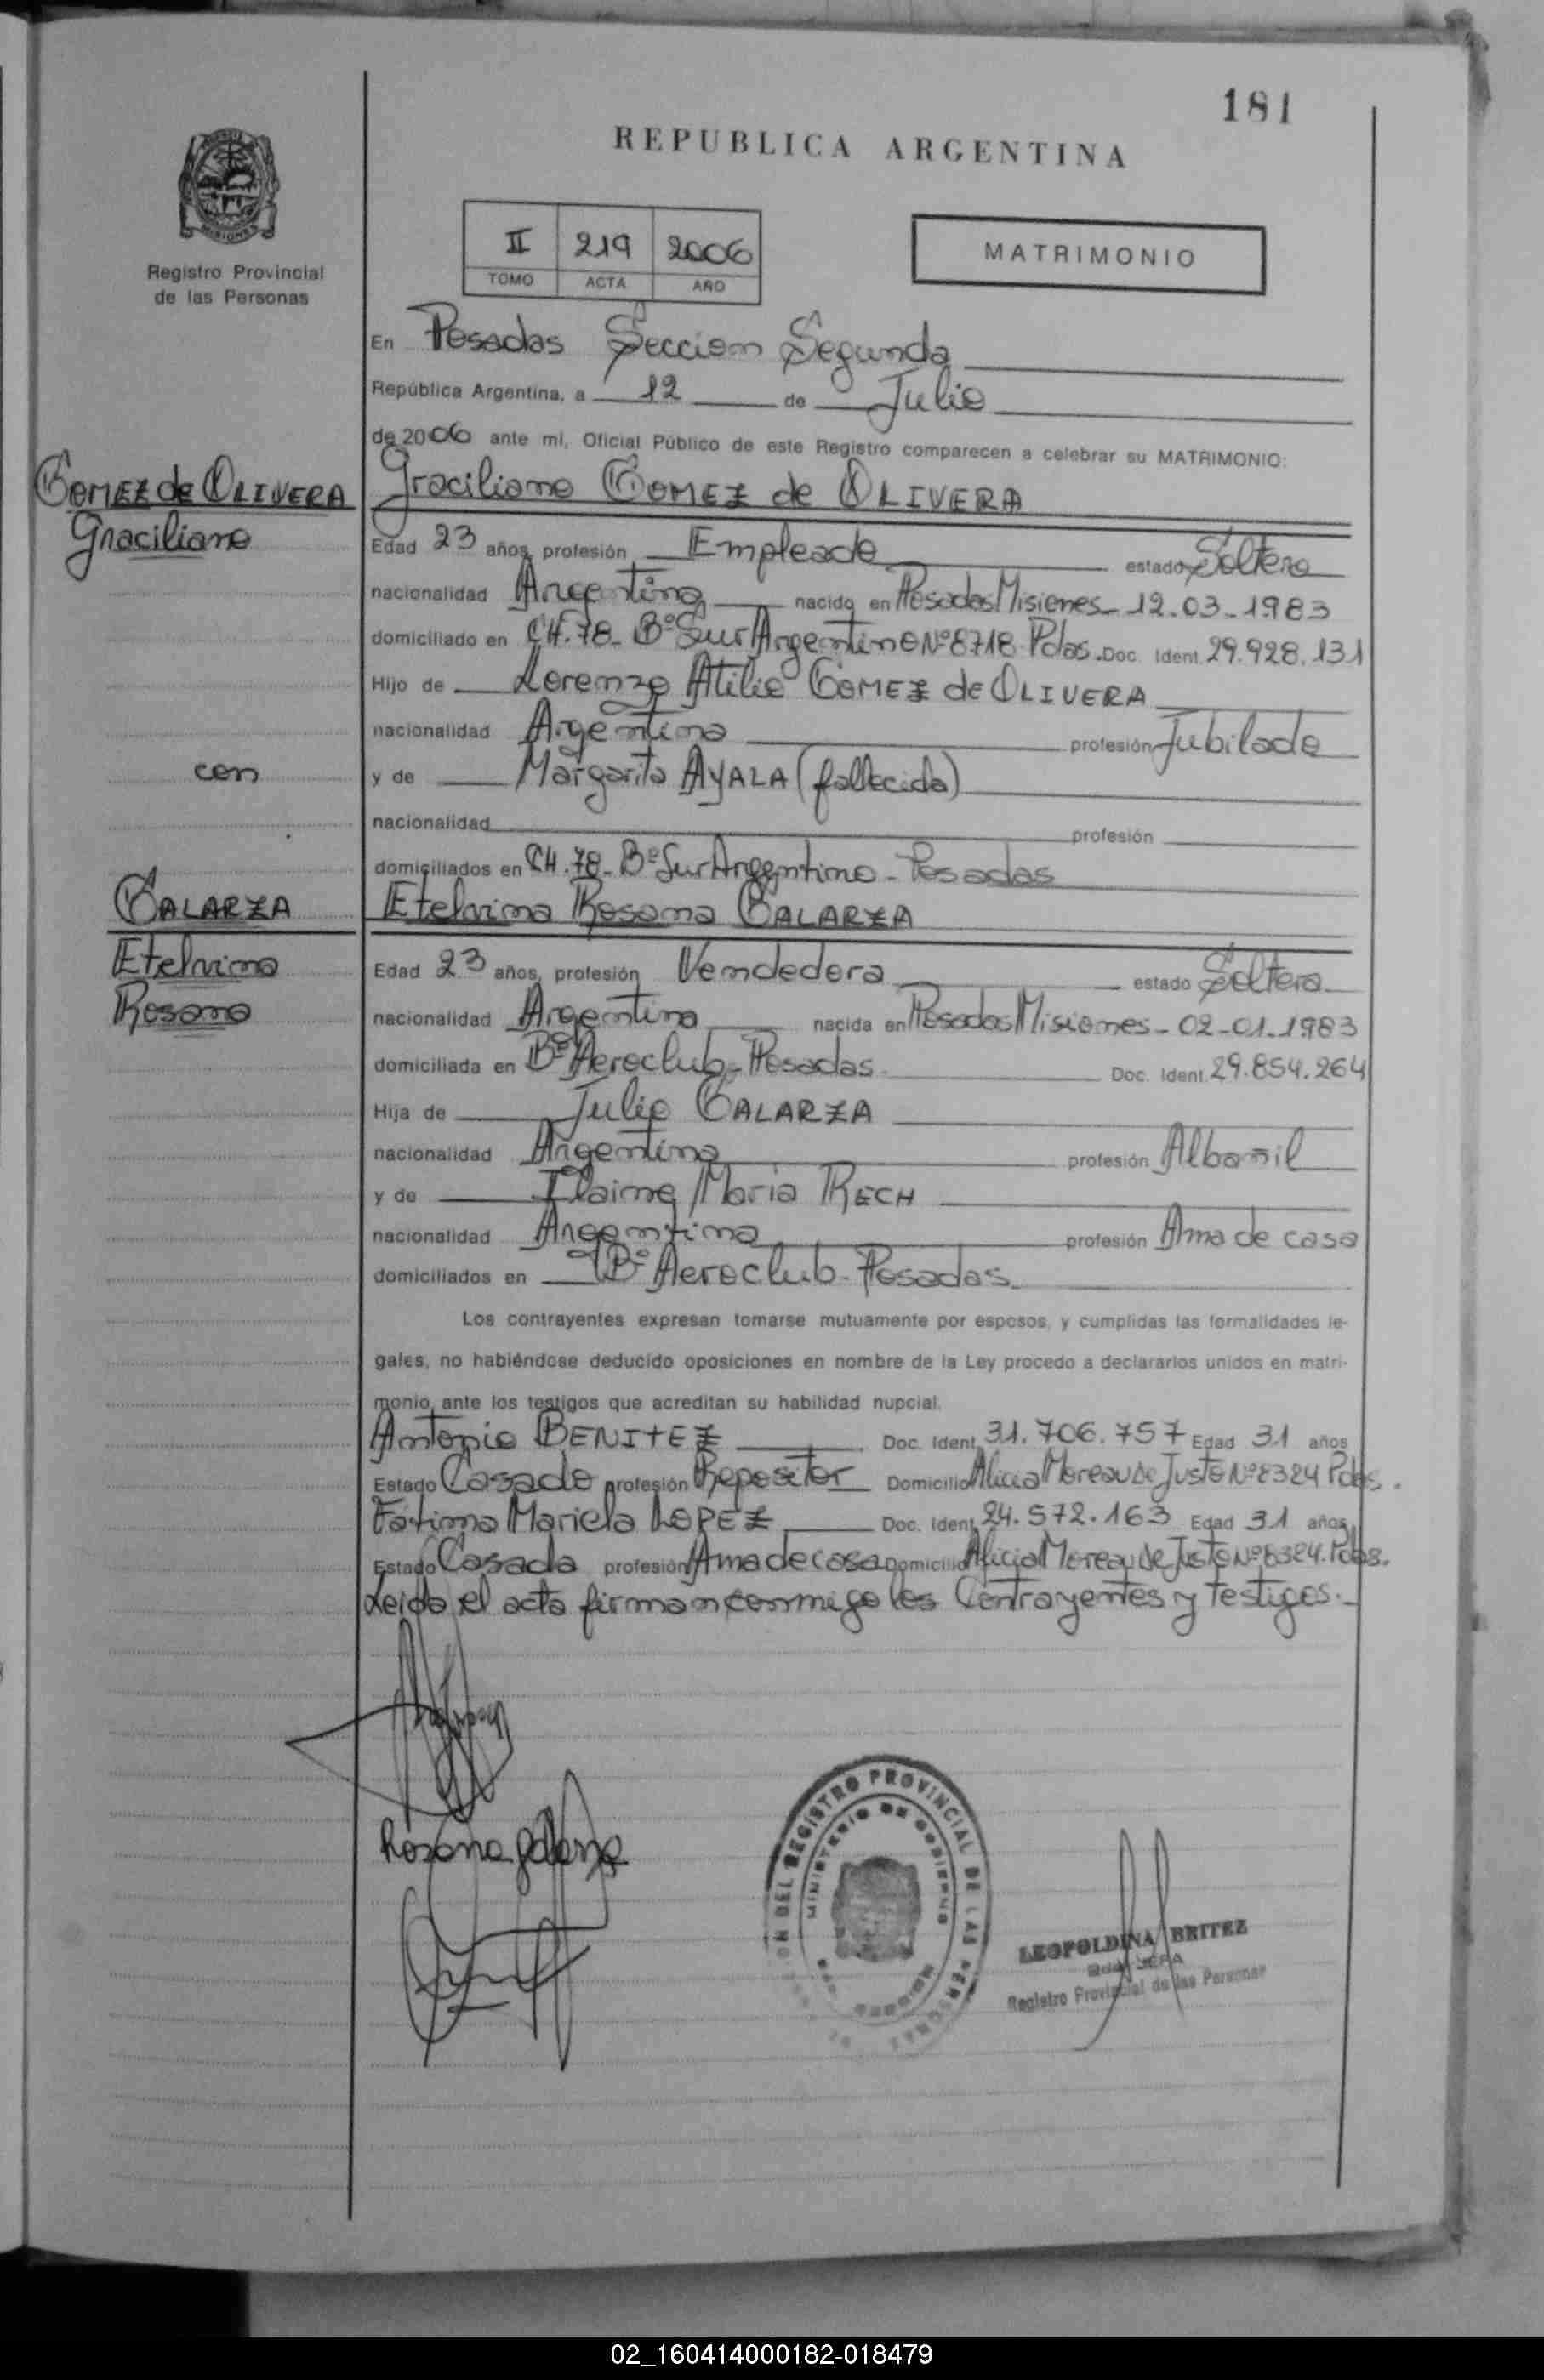 181
REPUBLICA ARGENTINA
MISIONES
Registro Provincial
de las Personas
II 219 2006
TOMO ACTA AÑO
MATRIMONIO
En Posadas Seccion Segunda
República Argentina, a 12 de Julio
de 2006 ante mi, Oficial Público de este Registro comparecen a celebrar su MATRIMONIO:
GOMEZ de OLIVERA
Graciliano
Graciliano GOMEZ de OLIVERA
Edad 23 años, profesión Empleado estado Soltero
nacionalidad Argentina nacido en Posadas Misiones - 12-03-1983
domiciliado en CH.78- Bº Sur Argentino Nº 8718 Pdas. Doc. Ident. 29.928.131
Hijo de Lorenzo Atilio GOMEZ de OLIVERA
nacionalidad Argentina profesión Jubilado
con
y de Margarita AYALA (fallecida)
nacionalidad profesión
domiciliados en CH.78- Bº Sur Argentino - Posadas
GALARZA
Etelvina
Rosana
Etelvina Rosana GALARZA
Edad 23 años, profesión Vendedora estado Soltera
nacionalidad Argentina nacida en Posadas Misiones - 02-01-1983
domiciliada en Bº Aeroclub- Posadas Doc. Ident. 29.854.264
Hija de Julio GALARZA
nacionalidad Argentina profesión Albañil
y de Maria RECH
nacionalidad Argentina profesión Ama de casa
domiciliados en Bº Aeroclub- Posadas
Los contrayentes expresan tomarse mutuamente por esposos, y cumplidas las formalidades le-
gales, no habiéndose deducido oposiciones en nombre de la Ley procedo a declararlos unidos en matri-
monio, ante los testigos que acreditan su habilidad nupcial.
Antonio BENITEZ Doc. Ident. 31.706.757 Edad 31 años
Estado Casado profesión Repositor Domicilio Alicia Moreau de Justo Nº 8324 Pdas.
Fátima Mariela LOPEZ Doc. Ident. 24.572.163 Edad 31 años
Estado Casada profesión Ama de casa Domicilio Alicia Moreau de Justo Nº 8324. Pdas.
Leida el acta firman conmigo los Contrayentes y testigos.-
Rosana Galarza
DEL REGISTRO PROVINCIAL DE LAS PERSONAS
MINISTERIO DE GOBIERNO
MISIONES
LEOPOLDINA BRITEZ
Registro Provincial de las Personas
02_160414000182-018479